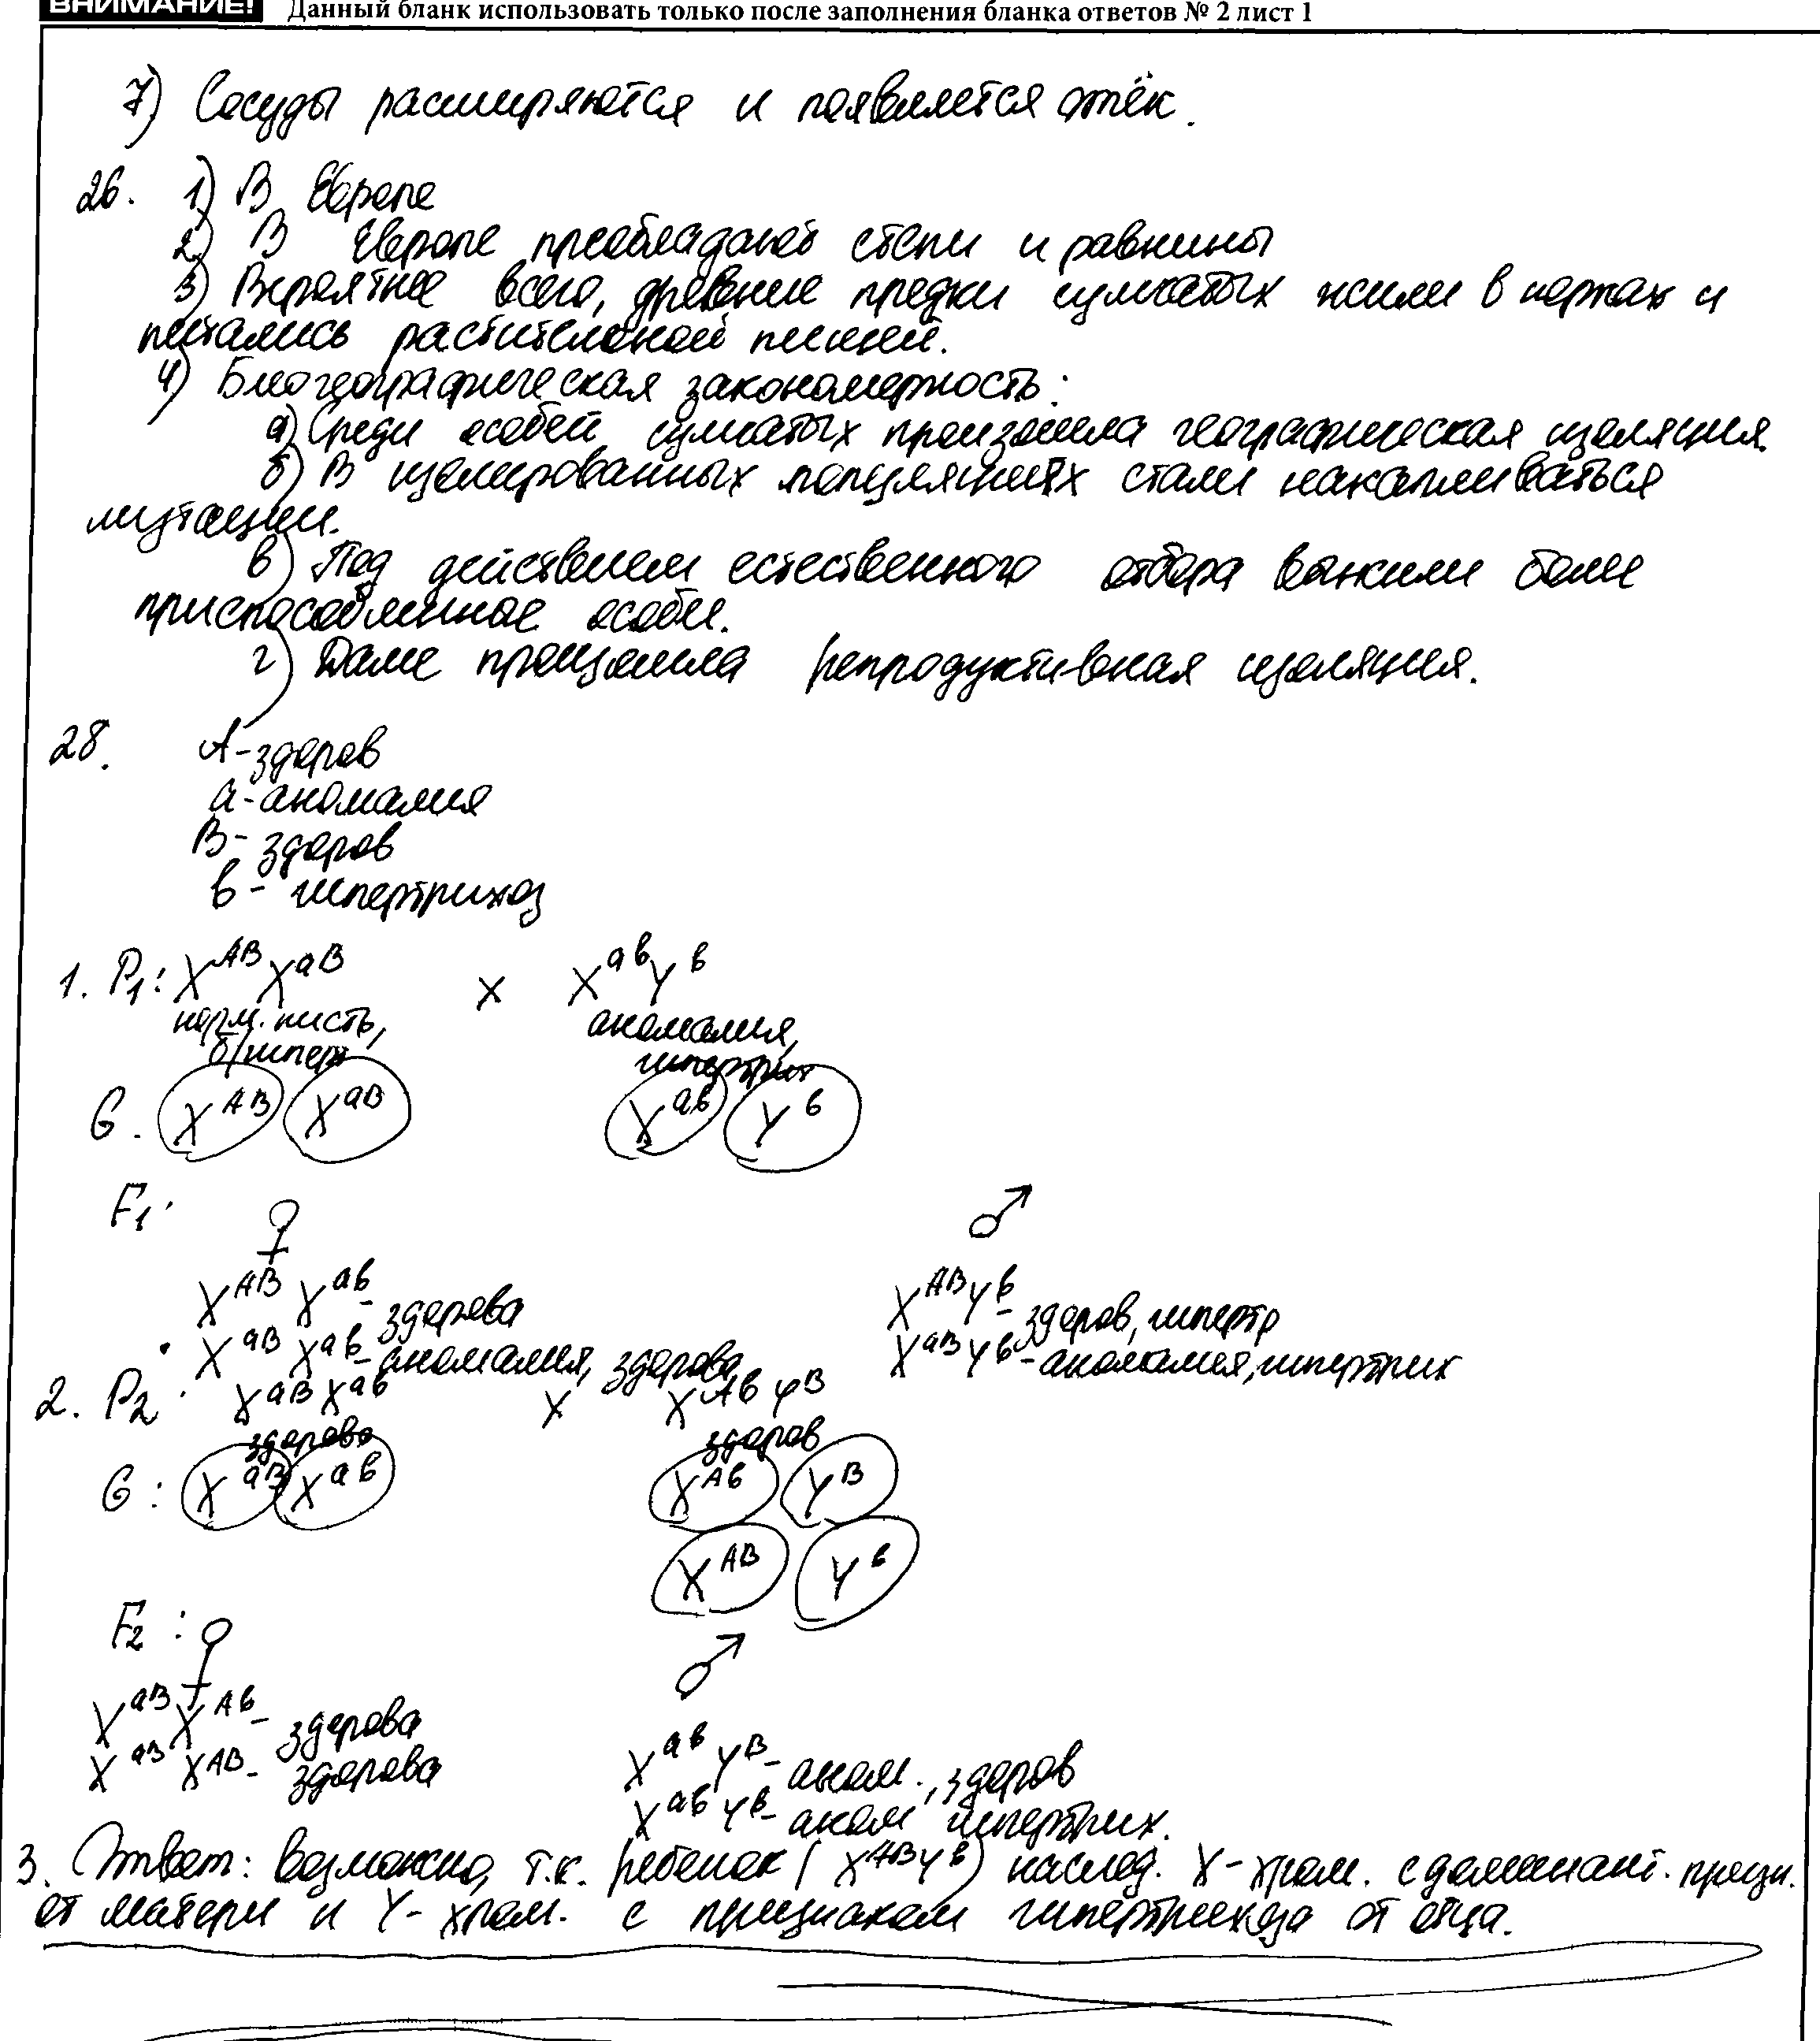 ВНИМАНИЕ! Данный бланк использовать только после заполнения бланка ответов № 2 лист 1
7) Сосуды расширяются и появляется отёк.
26. 1) В Европе
2) В Европе преобладают степи и равнины
3) Вероятнее всего, древние предки сумчатых жили в норах и
питались растительной пищей.
4) Биогеографическая закономерность:
а) Среди особей сумчатых произошла географическая изоляция.
б) В изолированных популяциях стали накапливаться
мутации.
в) Под действием естественного отбора выжили более
приспособленные особи.
г) Далее произошла репродуктивная изоляция.
28. А - здоров
а - аномалия
В - здоров
в - гипертрихоз
1. P₁: X^AB X^aB x X^aв Y^в
норм. кисть, аномалия,
б/гиперт гипертрих
G. X^AB X^aB X^aв Y^в
F₁: ♀ ♂
X^AB X^aв - здорова X^AB Y^в - здоров, гипертр
X^aB X^aв - аномалия, здорова X^aB Y^в - аномалия, гипертрих
2. P₂: X^aB X^aв x X^Aв Y^B
здорова здоров
G: X^aB X^aв X^Aв Y^B
X^AB Y^в
F₂: ♀ ♂
X^aB X^Aв - здорова
X^aB X^AB - здорова
X^aв Y^B - аном., здоров
X^aв Y^в - аном гипертрих.
3. Ответ: возможно, т.к. ребенок (X^AB Y^в) наслед. X-хром. с доминант. призн.
от матери и Y-хром. с признаком гипертрихоза от отца.